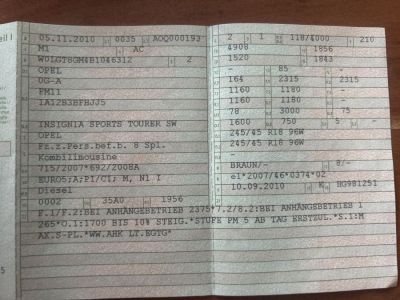 05.11.2010 0035 AOQ000193
M1 AC
W0LGT8GM4B1046312 2
OPEL
0G-A
FM11
1A12B3BFBJJ5
INSIGNIA SPORTS TOURER SW
OPEL
Fz.z.Pers.bef.b. 8 Spl.
Kombilimousine
715/2007*692/2008A
EURO5;A;PI/CI; M, N1 I
Diesel
0002 35A0 1956
2 1 118/4000 210
4908 1856
1520 1843
- 85 -
164 2315 2315
1160 1180 -
1160 1180 -
78 3000 75
1600 750 5 -
245/45 R18 96W
245/45 R18 96W
-
BRAUN/- 8/-
e1*2007/46*0374*02
10.09.2010 K HG981251
F.1/F.2:BEI ANHÄNGEBETRIEB 2375*7.2/8.2:BEI ANHÄNGEBETRIEB 1
265*O.1:1700 BIS 10% STEIG.*STUFE PM 5 AB TAG ERSTZUL.*S.1:M
AX.S-PL.*WW.AHK LT.EGTG*